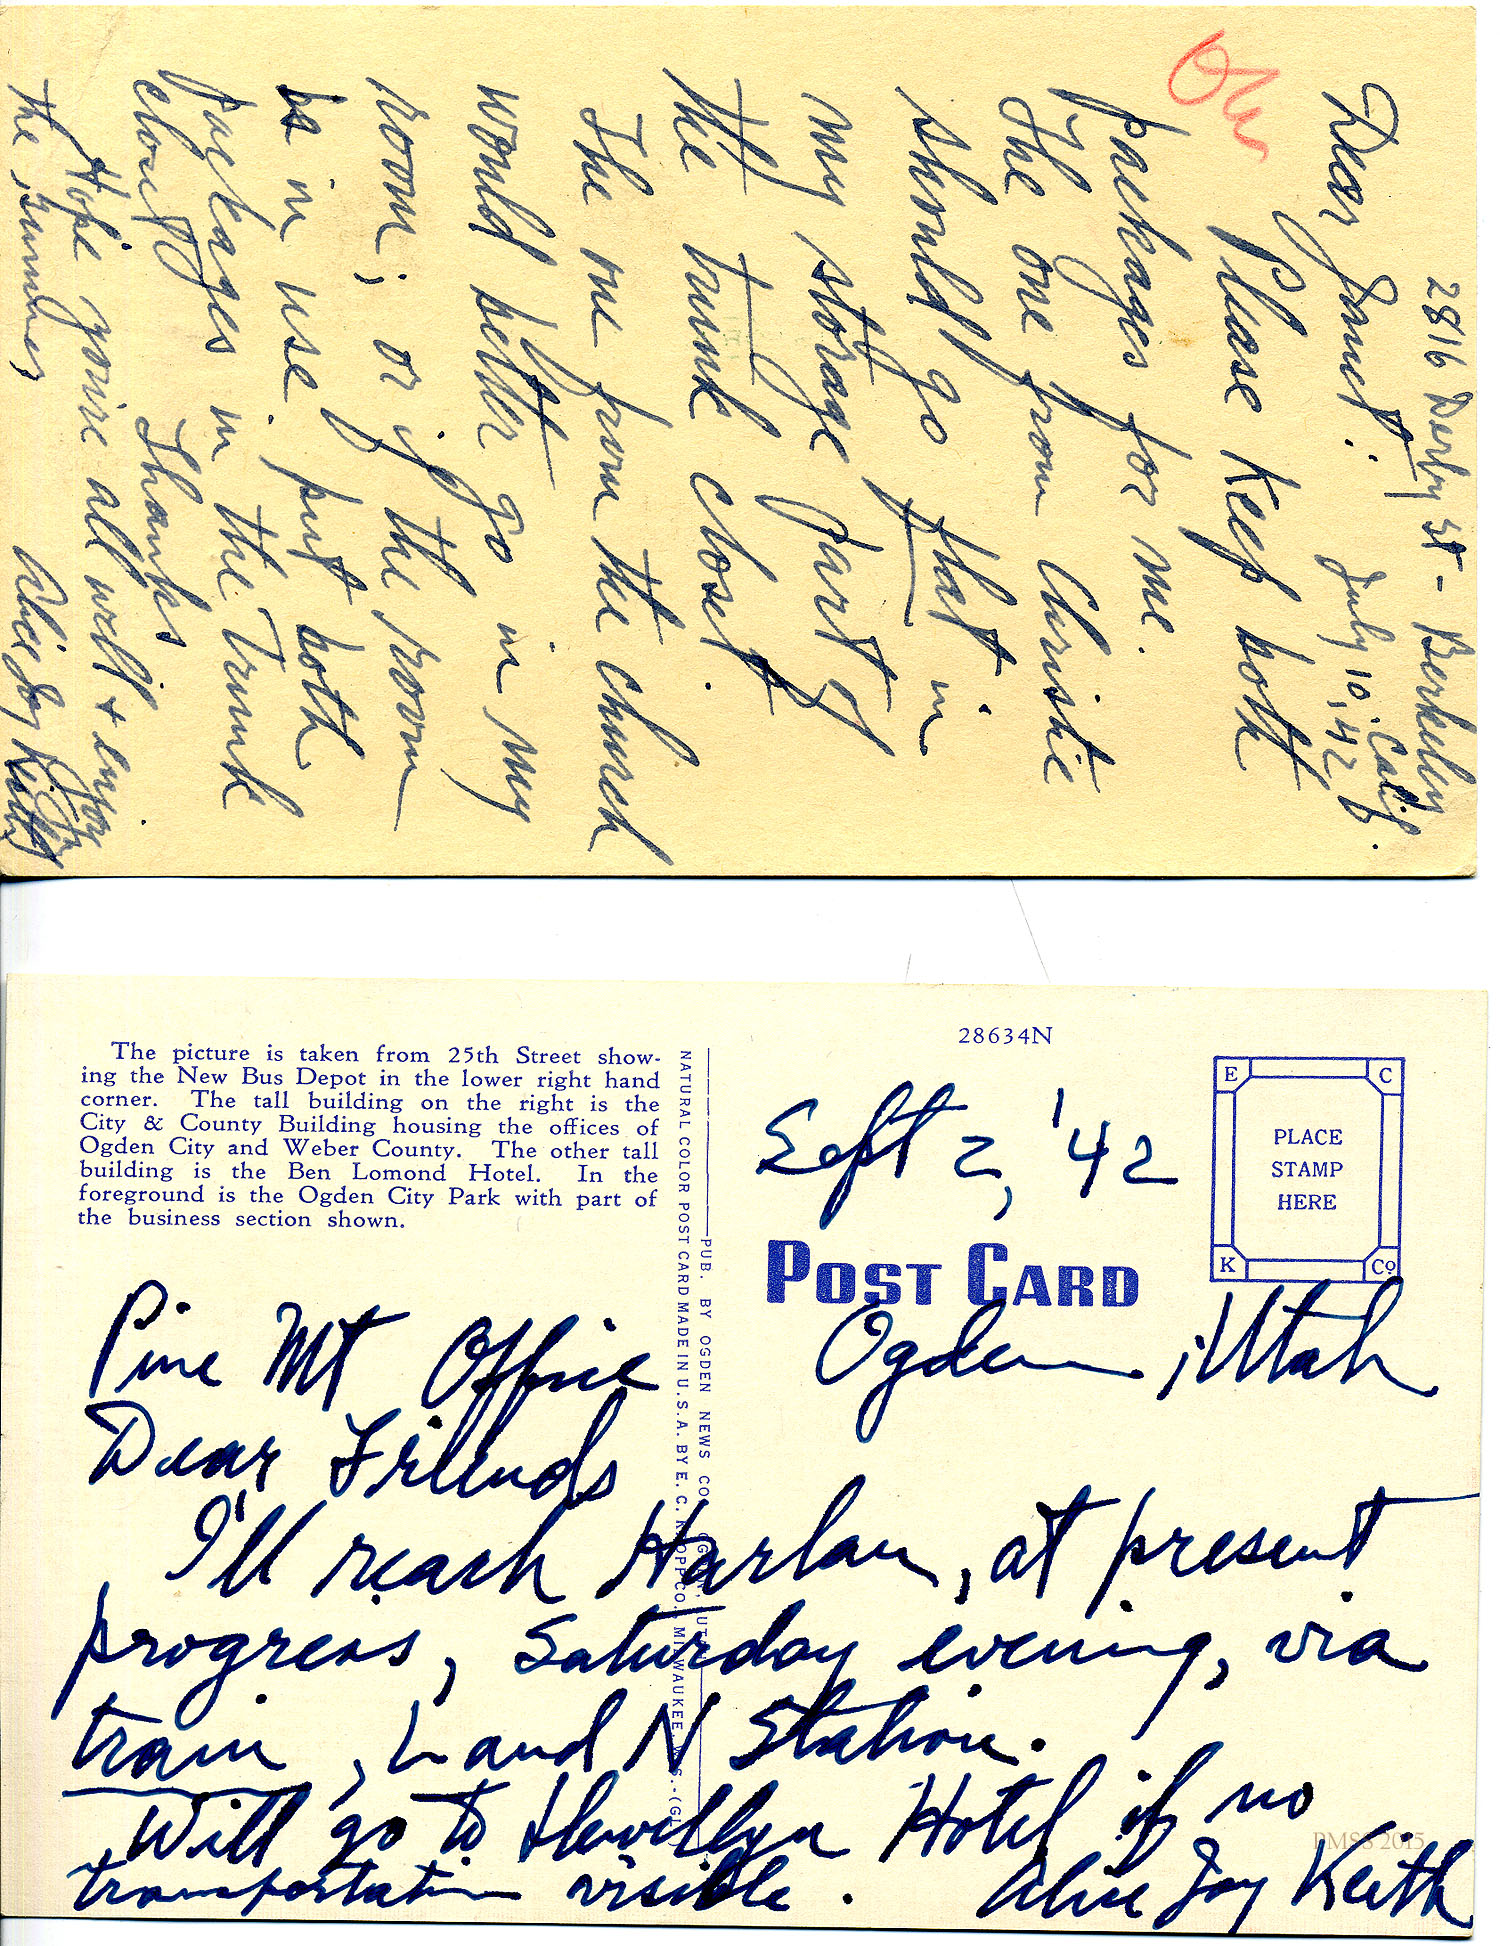 2816 Derby St - Berkeley
Calif.
July 10, '42
Dear Janet:
Please keep both
packages for me.
The one from Christie
should go that in
my storage part of
the trunk closet.
The one from the church
would better go in my
room; or if the room
is in use put both
packages in the Trunk
closet. Thanks.
Hope you're all well & enjoying
the summer Alice Joy Keith
28634N
The picture is taken from 25th Street show-
ing the New Bus Depot in the lower right hand
corner. The tall building on the right is the
City & County Building housing the offices of
Ogden City and Weber County. The other tall
building is the Ben Lomond Hotel. In the
foreground is the Ogden City Park with part of
the business section shown.
NATURAL COLOR POST CARD MADE IN U.S.A. BY E. C. KROPP CO., MILWAUKEE, WIS.
PUB. BY OGDEN NEWS CO., OGDEN, UTAH
E C
PLACE
STAMP
HERE
K Co
Sept 2, '42
POST CARD
Ogden, Utah
Pine Mt Office
Dear Friends
I'll reach Harlan, at present
progress, Saturday evening, via
train, L and N Station.
Will go to Llewellyn Hotel if no
transportation visible. Alice Joy Keith
PMSS 2015